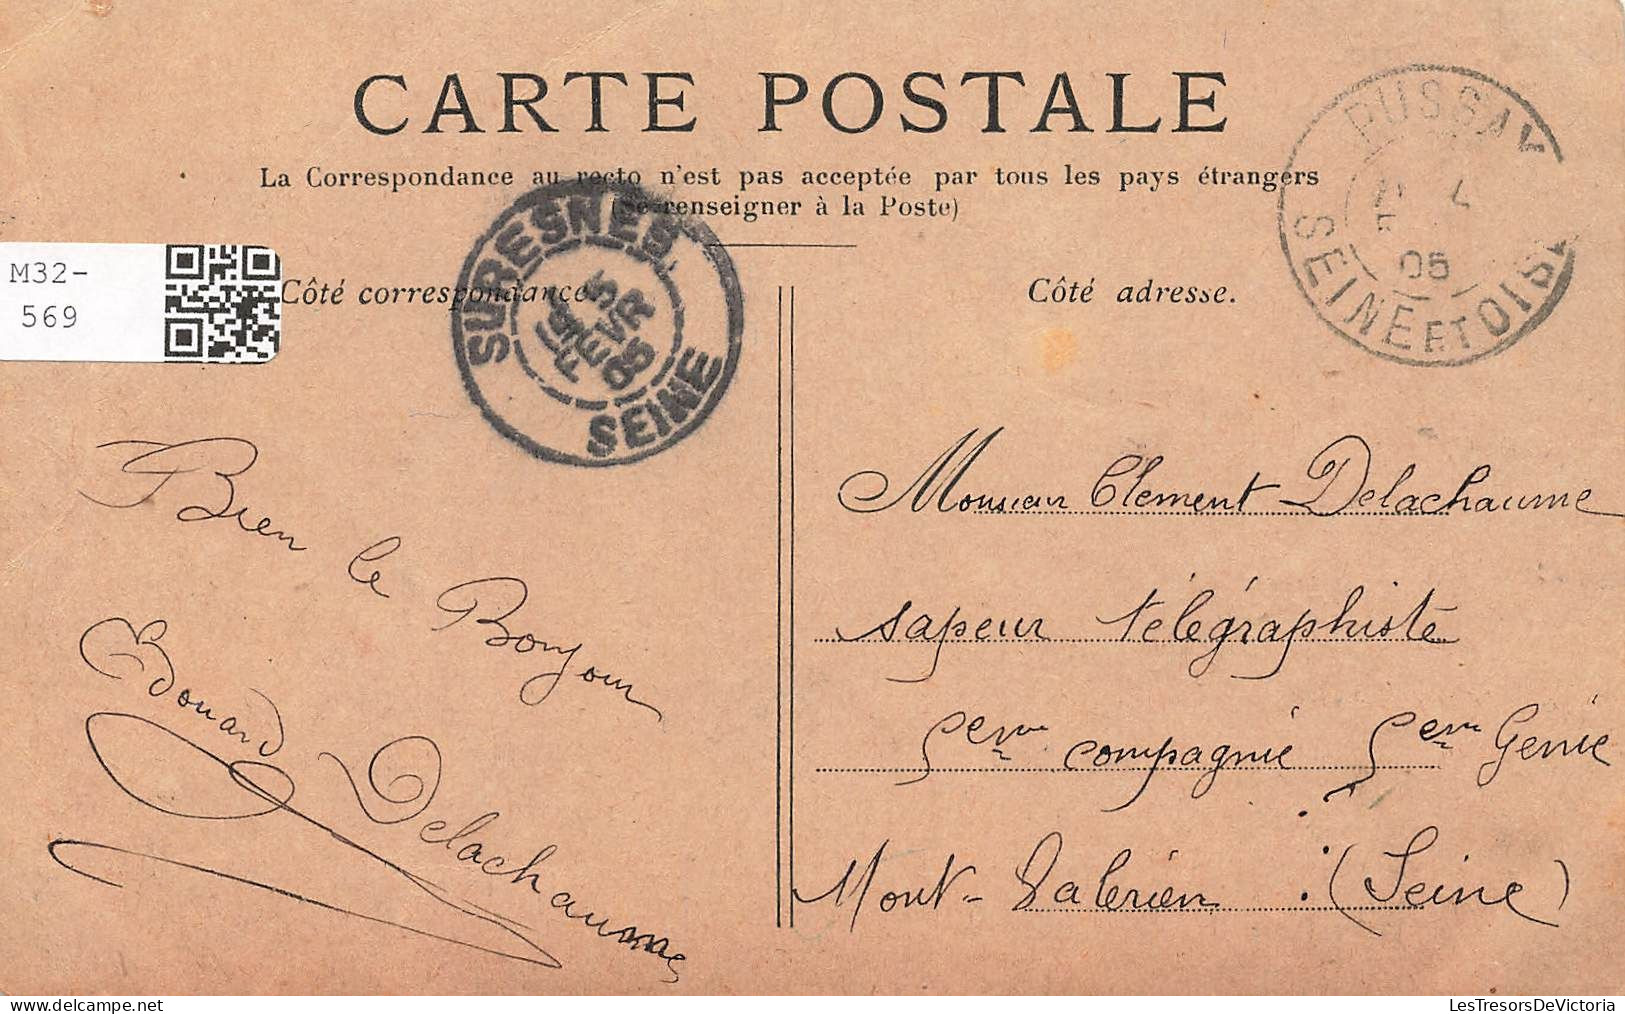 CARTE POSTALE
La Correspondance au recto n'est pas acceptée par tous les pays étrangers
(se renseigner à la Poste)
PUSSAY
05
SEINE ET OISE
SURESNES
FEVR
05
SEINE
M32-
569
Côté correspondance.
Côté adresse.
Bien le Bonjour
Edouard Delachaume
Monsieur Clement Delachaume
sapeur télégraphiste
5eme compagnie 5eme Genie
Mont-Valérien (Seine)
LesTresorsDeVictoria